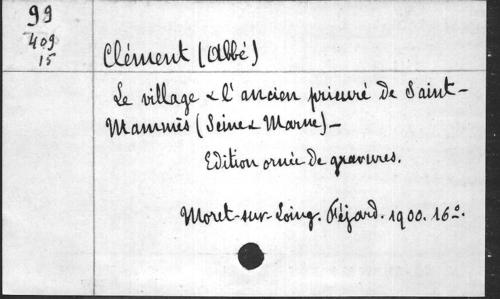 99
409
15
Clément (Abbé)
Le village & l'ancien prieuré de Saint-
Mammès (Seine & Marne) -
Edition ornée de gravures.
Moret-sur-Loing. Féjard. 1900. 16o.